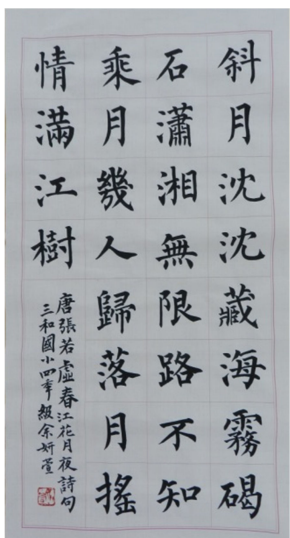 斜月沈沈藏海霧碣
石瀟湘無限路不知
乘月幾人歸落月搖
情滿江樹
唐張若虛春江花月夜詩句
三和國小四年級余妍萱